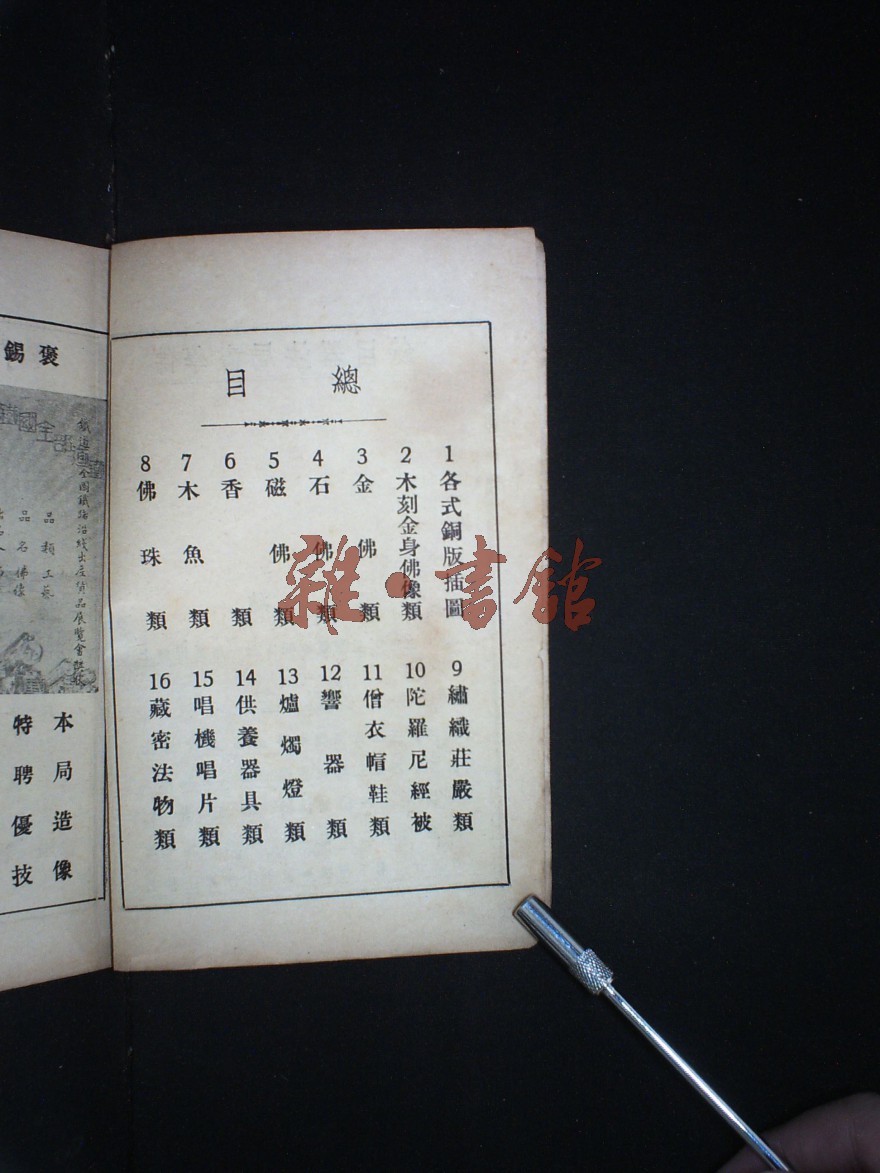 總目
1 各式銅版插圖
2 木刻金身佛像類
3 金佛類
4 石佛類
5 磁佛類
6 香類
7 木魚類
8 佛珠類
9 繡織莊嚴類
10 陀羅尼經被
11 僧衣帽鞋類
12 響器類
13 爐燭燈類
14 供養器具類
15 唱機唱片類
16 藏密法物類
褒錫
國全
全國鐵路沿綫出產貨品展覽會
品類工藝
品名佛像
本局造像
特聘優技
雜·書館